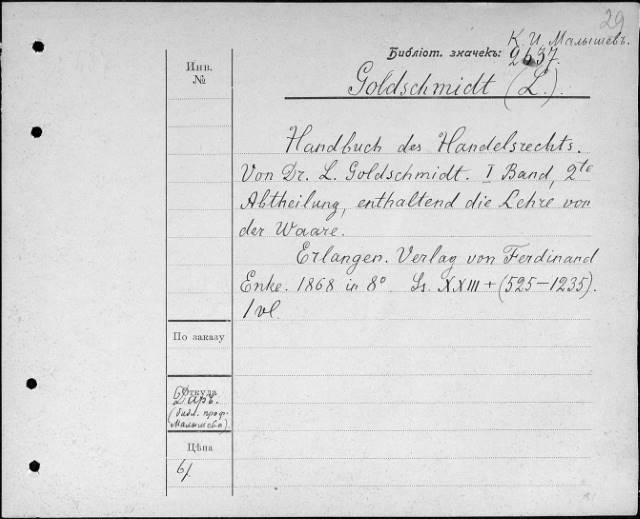 29
К. И. Малышевъ.
Библіот. значекъ: 2637.
Инв.
№
Goldschmidt (L.).
Handbuch des Handelsrechts.
Von Dr. L. Goldschmidt. I Band, 2te
Abtheilung, enthaltend die Lehre von
der Waare.
Erlangen. Verlag von Ferdinand
Enke. 1868 in 8º Ss. XXIII + (525—1235).
1 vl.
По заказу
Откуда
Даръ.
(библ. проф.
Малышева)
Цѣна
6/.